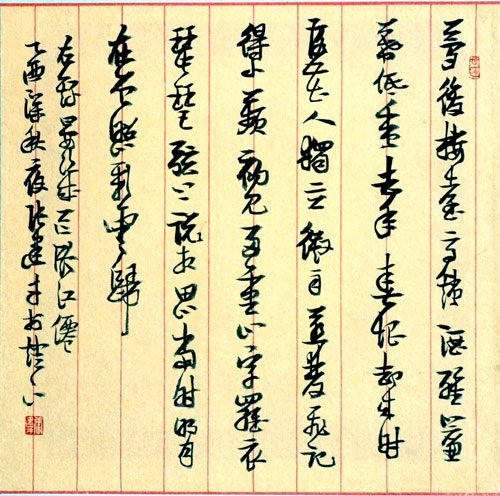 夢後樓臺高鎖酒醒簾
幕低垂去年春恨却来时
落花人獨立微雨燕雙飛記
得小蘋初見兩重心字羅衣
琵琶弦上説相思當时明月
在曾照彩雲歸
右録晏 臨江僊
乙酉深秋夜張建才書